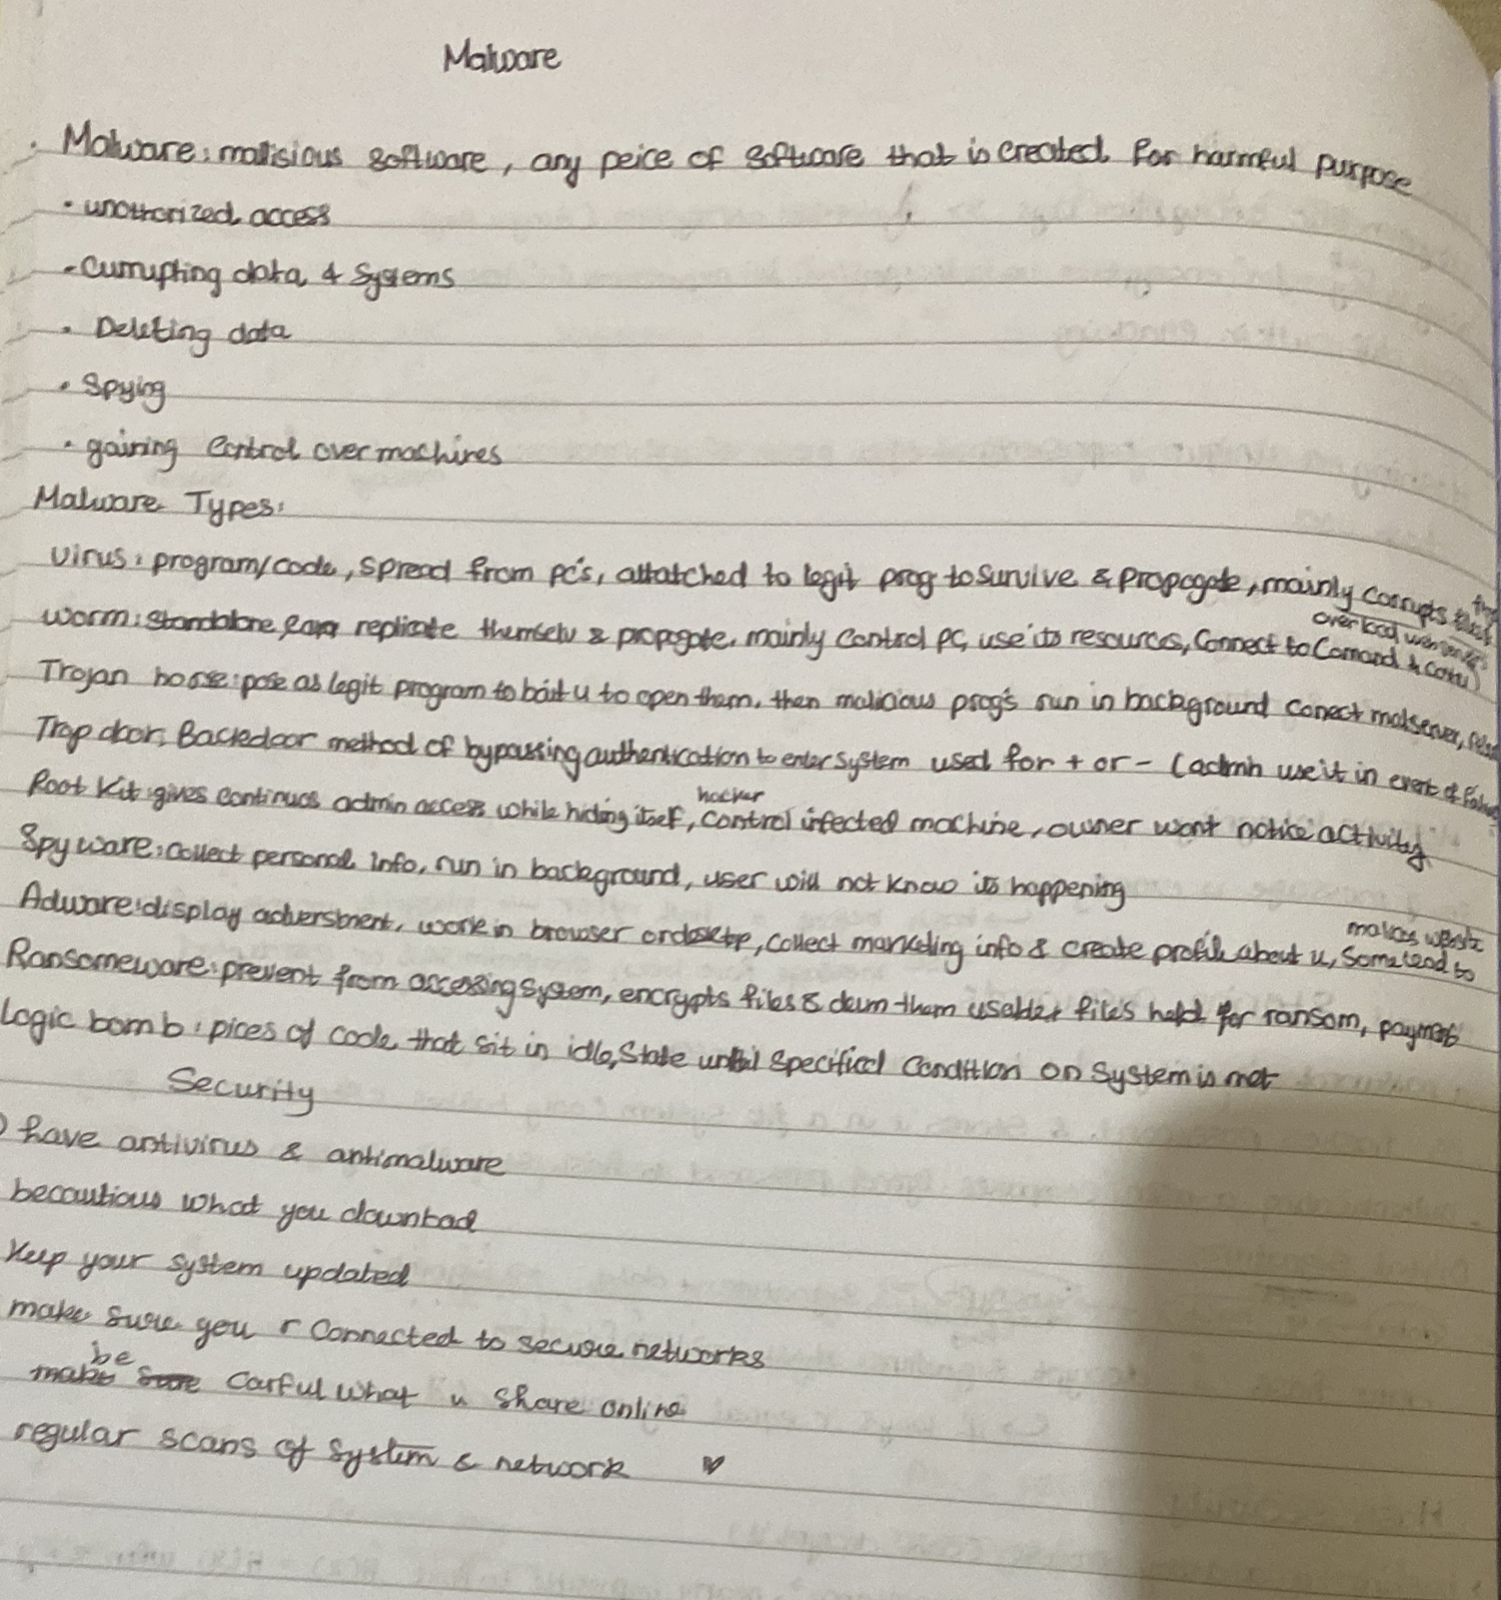 Malware
. Malware: malisious software, any peice of software that is created for harmful purpose
• unothorized access
- Currupting data & Systems
• Deleting data
• Spying
• gaining control over machines
Malware Types:
virus: program/code, spread from pc's, attatched to legit prog to survive & propogate, mainly corrupts
worm: standalone, replicate themselv & propogate, mainly control pc, use its resources, Connect to Comand &
overload
Trojan horse: pose as legit program to bait u to open them, then malicious prog's run in background conect malserver,
Trap door: Backdoor method of bypassing authentication to enter system used for + or - (admin use it in event of
Root Kit: gives continuos admin access while hiding itself, hacker control infected machine, owner wont notice activity
Spyware: collect personal info, run in background, user will not know its happening
Adware: display adverstment, work in browser or, collect marketing info & create profile about u, Some tend to
Ransomeware: prevent from accessing system, encrypts files & them files held for ransom, payment
Logic bomb: pices of code that sit in idle, State until specified condition on system is met
Security
have antivirus & antimalware
becautious what you download
Keep your system updated
make sure you r Connected to secure networks
make sure be carful what u share online
regular scans of system & network ♥